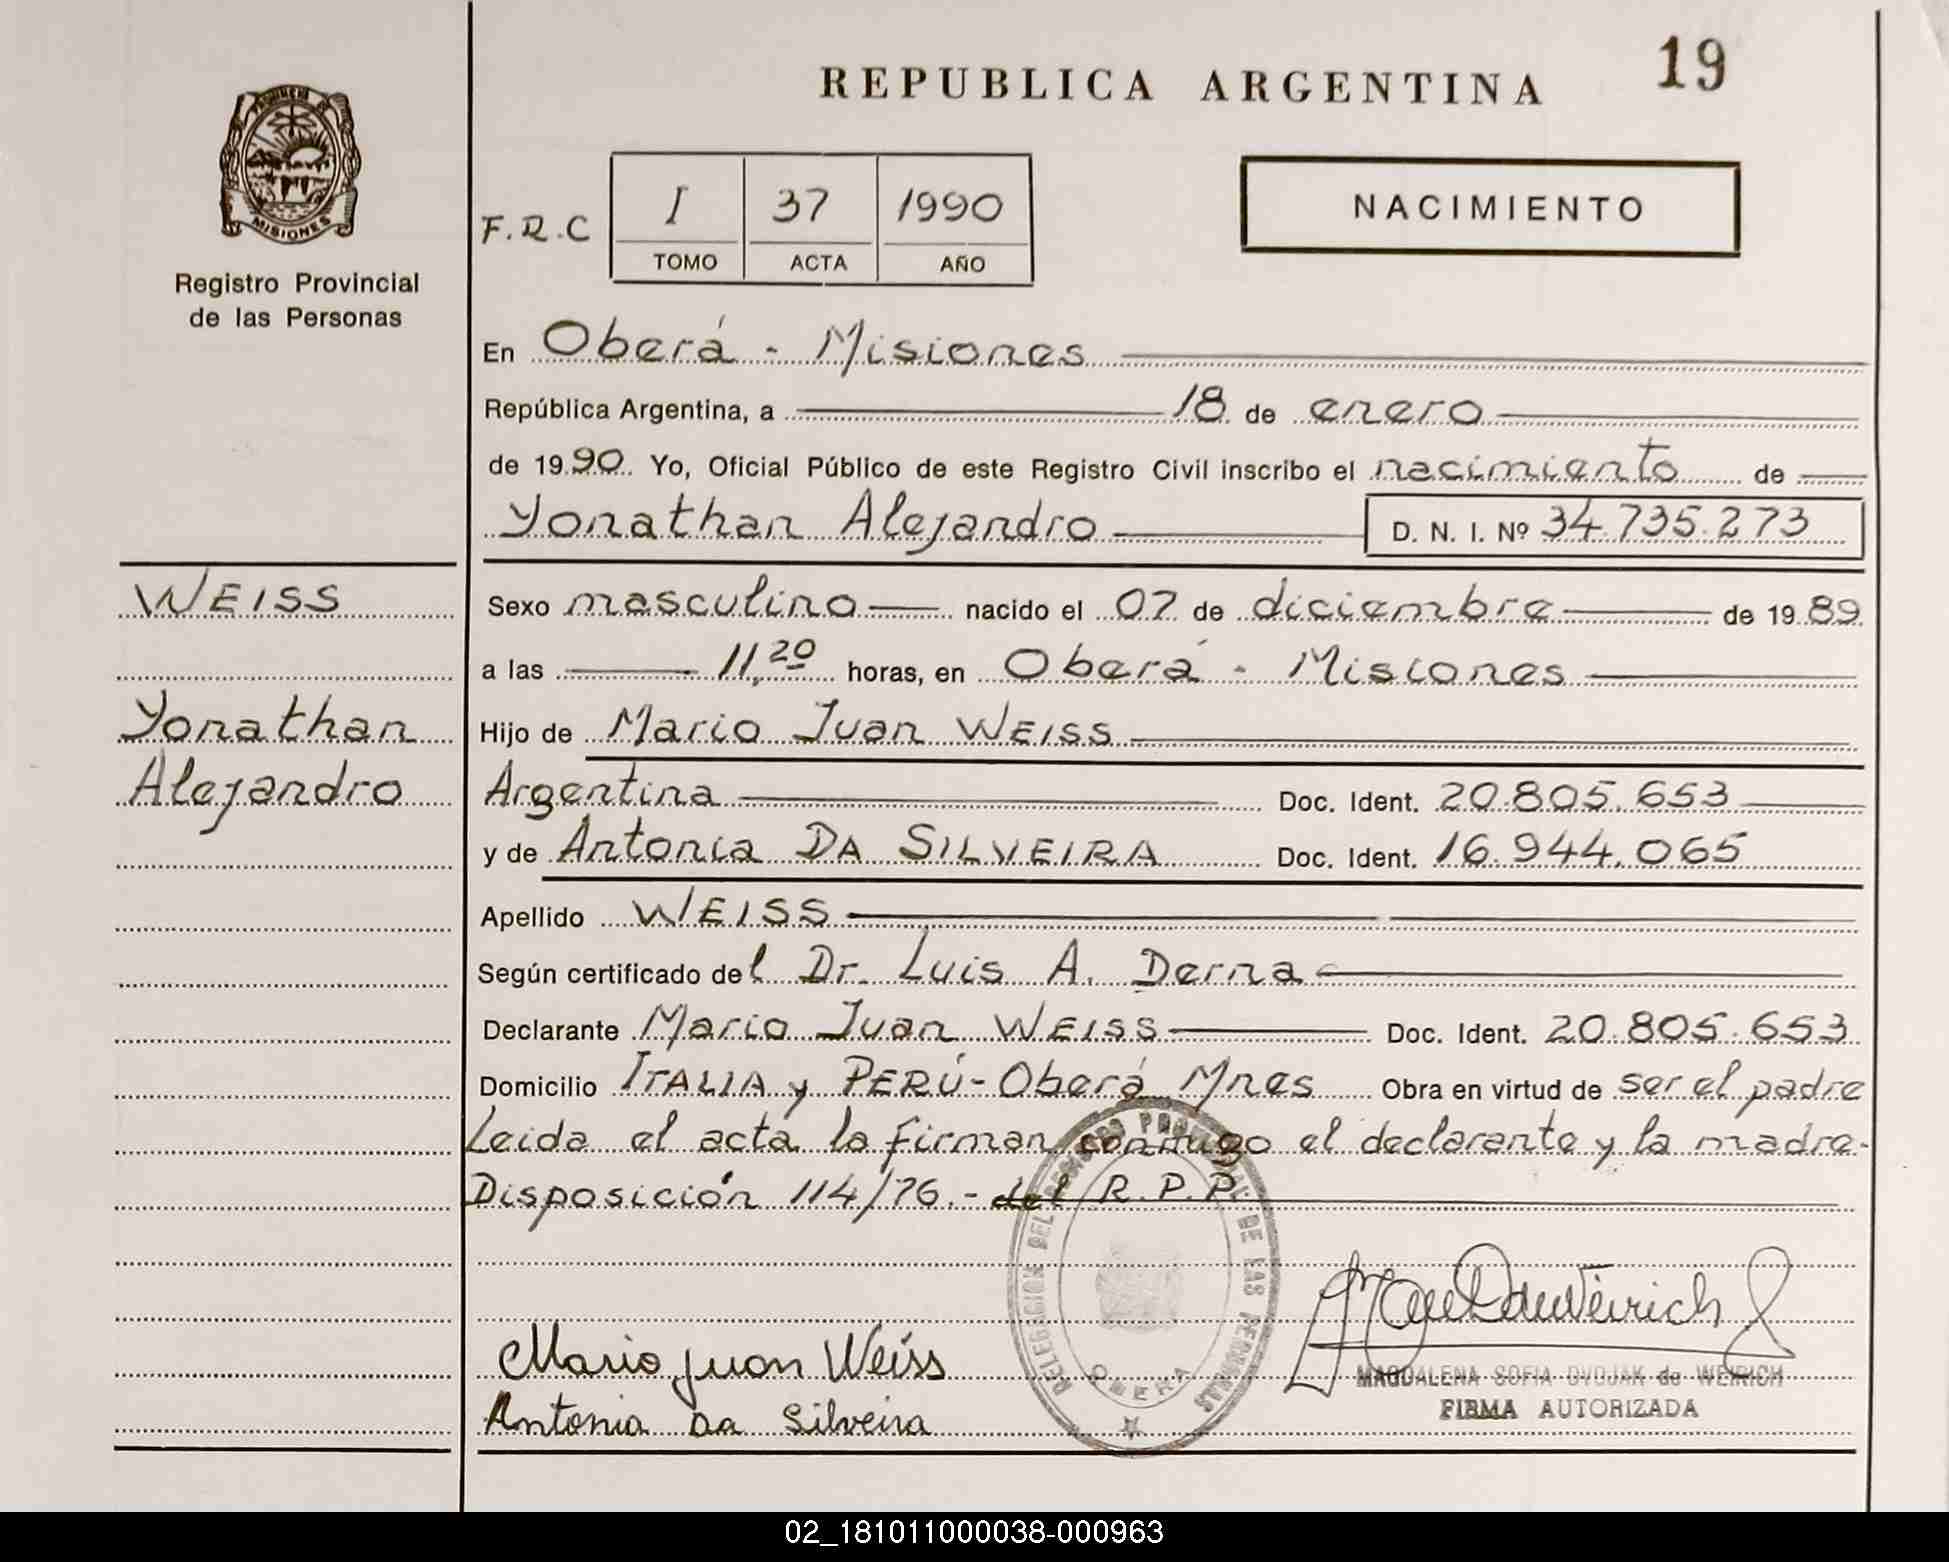 REPUBLICA ARGENTINA 19
PROVINCIA DE
MISIONES
Registro Provincial
de las Personas
F.R.C I 37 1990
TOMO ACTA AÑO
NACIMIENTO
En Oberá - Misiones
República Argentina, a 18 de enero
de 1990 Yo, Oficial Público de este Registro Civil inscribo el nacimiento de
Yonathan Alejandro D. N. I. Nº 34.735.273
WEISS
Yonathan
Alejandro
Sexo masculino nacido el 07 de diciembre de 1989
a las 11,20 horas, en Oberá - Misiones
Hijo de Mario Juan WEISS
Argentina Doc. Ident. 20.805.653
y de Antonia DA SILVEIRA Doc. Ident. 16.944.065
Apellido WEISS
Según certificado del Dr. Luis A. Derna
Declarante Mario Juan WEISS Doc. Ident. 20.805.653
Domicilio ITALIA y PERÚ - Oberá Mnes Obra en virtud de ser el padre
Leida el acta la firman conmigo el declarante y la madre-
Disposición 114/76.- del R.P.P.
DELEGACION DEL REGISTRO PROVINCIAL DE LAS PERSONAS
OBERA
Mario Juan Weiss
Antonia Da Silveira
MAGDALENA SOFIA DVOJAK de WEIRICH
FIRMA AUTORIZADA
02_181011000038-000963